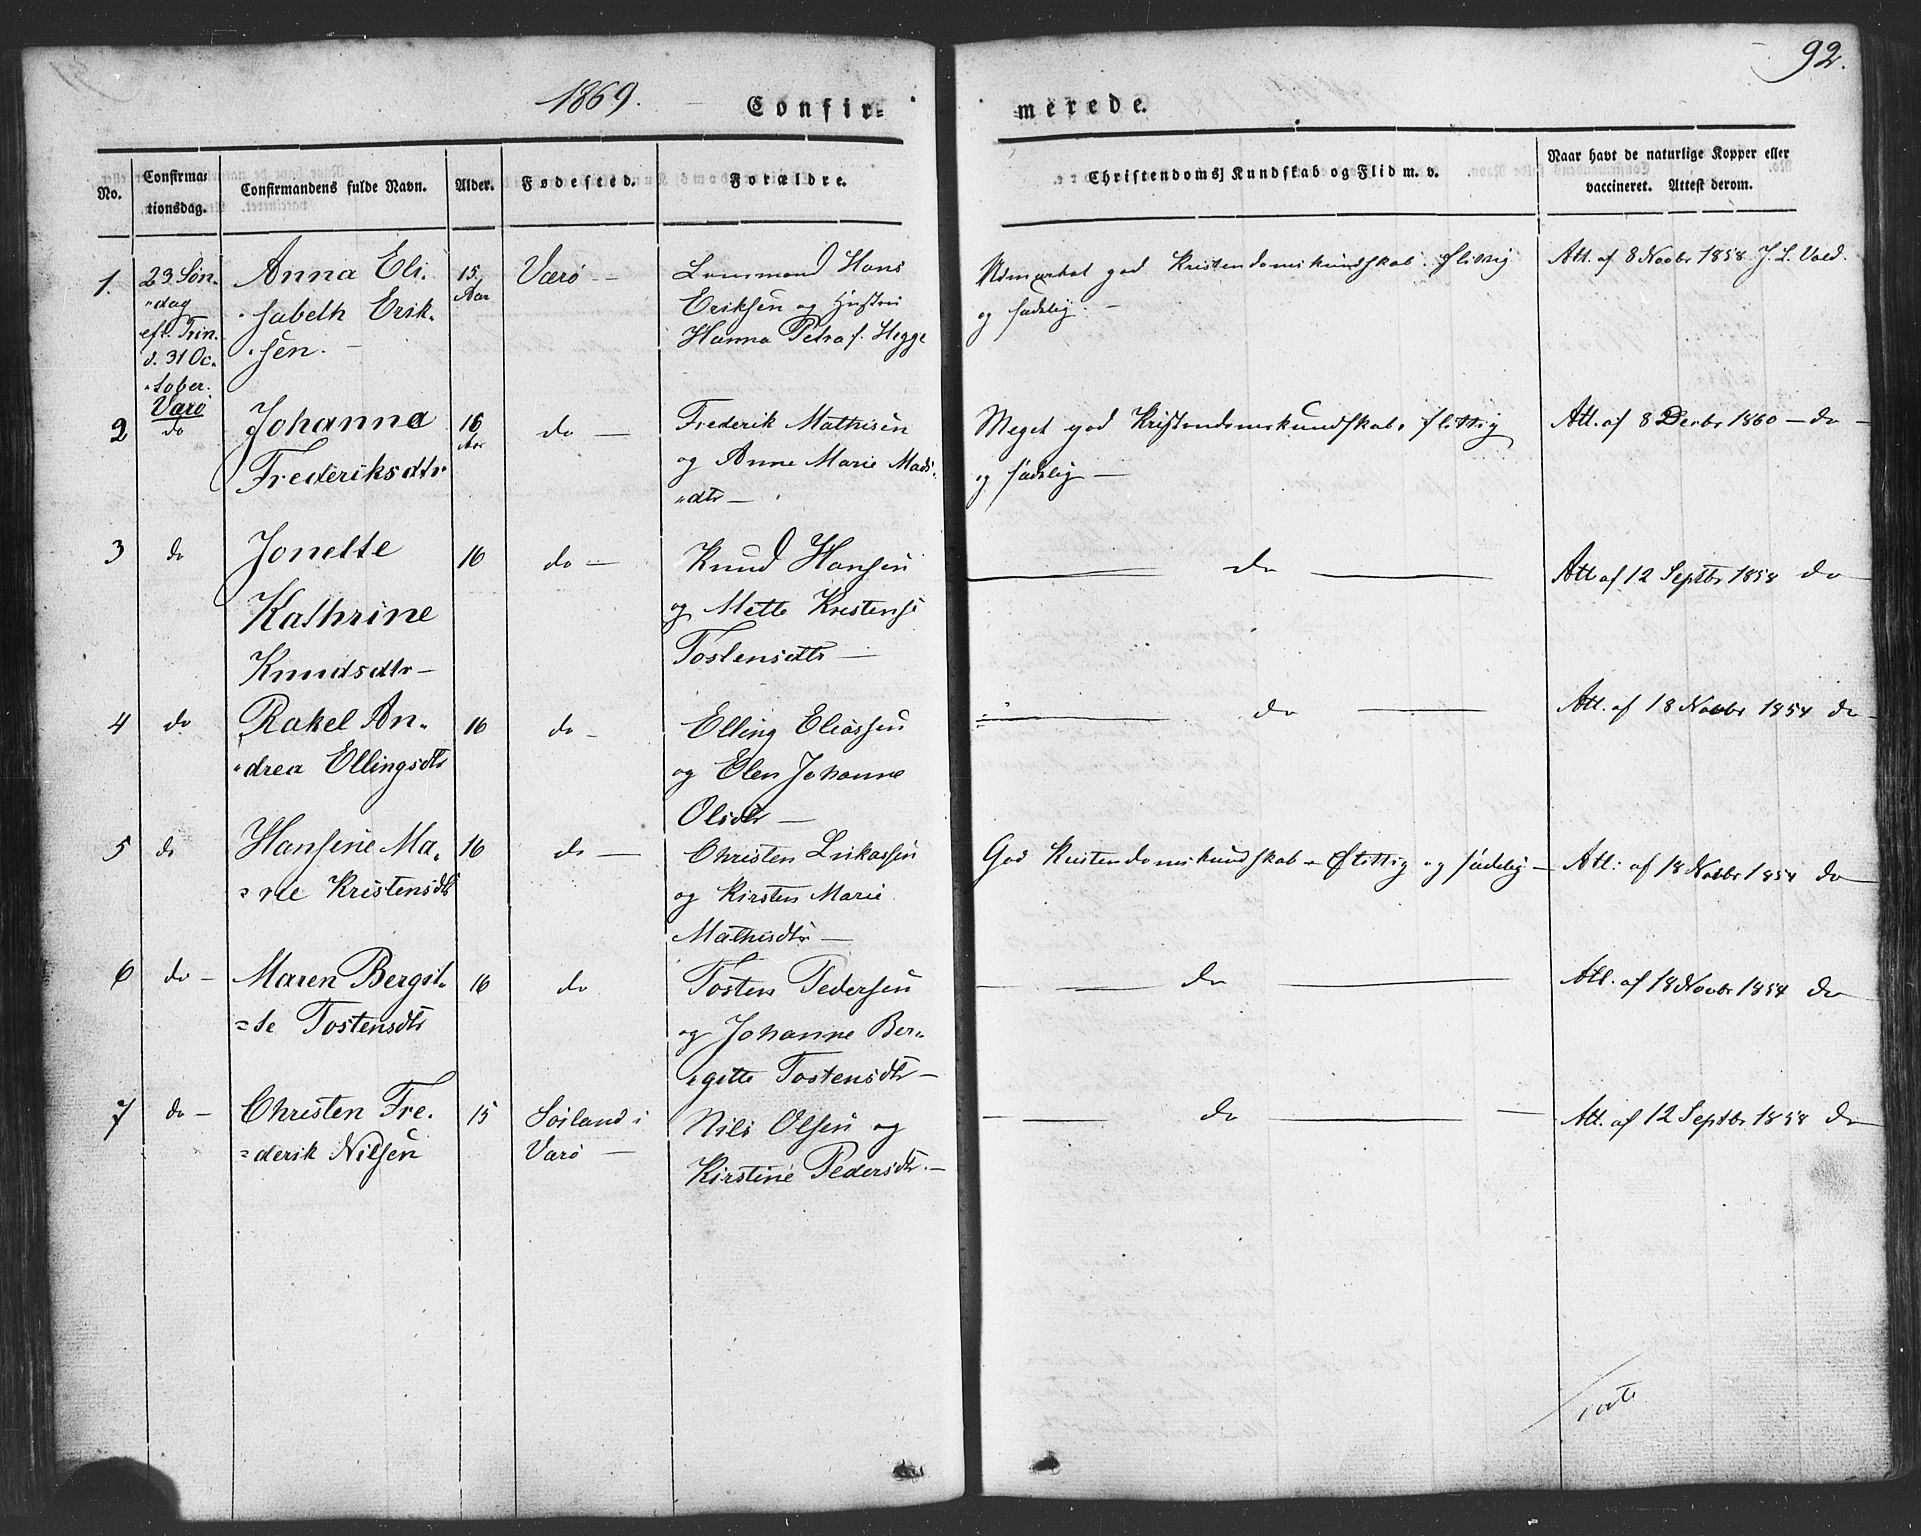 92.
1869. Confirmerede.
No. Confirmationsdag. Confirmandens fulde Navn. Alder. Fødested. Forældre. Christendoms Kundskab og Flid m. v. Naar havt de naturlige Kopper eller vaccineret. Attest derom.
1. 23 Søn- Anna Eli- 15 Værø — Lensmand Hans Udmærket god Kristendomskundskab. flittig Att. af 8 Novbr 1858 J. L.
"dag sabeth Erik- Aar Eriksen og Hustru og sædelig. —
eft. Trin. sen. — Hanna Petra f. Hegge
d. 31 Oc-
tober.
Værø
2 do Johanna 16 do — Frederik Mathisen Meget god Kristendomskundskab, flittig Att. af 8 Decbr 1860 — do —
Frederiksdtr Aar og Anne Marie Mads- og sædelig —
"dtr —
3 do Jonette 16 do — Knud Hansen — do — Att af 12 Septbr 1858 do —
Kathrine og Mette
Knudsdtr — Tostensdtr —
4 do Rakel An- 16 do — Elling Eliassen — do — Att. af 18 Novbr 1854 do —
"drea Ellingsdtr og Elen Johanne
Olsdtr —
5 do Hansine Ma- 16 do — Christen Lukassen God Kristendomskundskab — flittig og sædelig — Att. af 18 Novbr 1854 do —
=rie Kristensdtr og Kirsten Marie
Mathisdtr —
6 do — Maren Bergit- 16 do Tosten Pedersen — do — Att. af 18 Novbr 1854 do —
=te Tostensdtr og Johanne Ber-
"gitte Tostensdtr —
7 do — Christen Fre- 15 Sørland i Nils Olsen og — do — Att. af 12 Septbr 1858 do —
=derik Nilsen Værø — Kirstine Pedersdtr. —